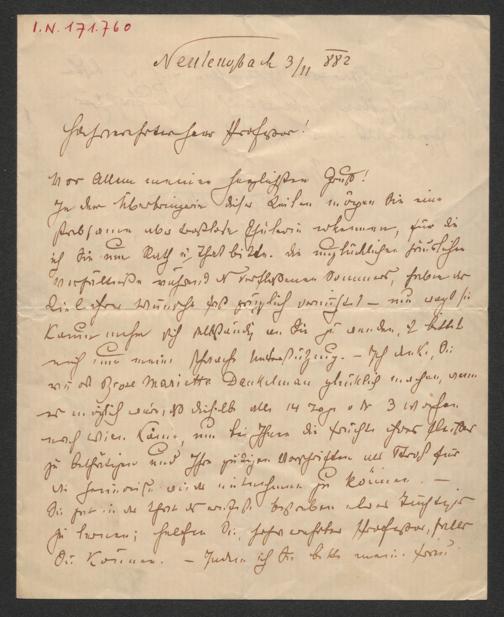 I.N. 171.760
Neulengbach 3/11 882
Hochverehrter Herr Professor!
Vor Allem meinen herzlichsten Gruß!
In der Überbringerin dieser Zeilen mögen Sie eine
Schülerin erkennen, für die
ich Sie um Rath u. That bitte. Die unglücklichen häuslichen
Verhältnisse während des verflossenen Sommers, haben das
Ziel ihrer Wünsche fast gänzlich vernichtet – nun wagt sie
kaum mehr sich selbständig an Sie zu wenden, u. bittet
mich um meine schwache Unterstützung. – Ich denke, Sie
Marietta Denkelman glücklich machen, wenn
es möglich wäre, daß dieselbe alle 14 Tage o. 3 Wochen
nach Wien käme, um bei Ihnen die Früchte ihres Fleißes
zu bethätigen und Ihre gütigen Vorschriften als
die wieder mitnehmen zu können. –
Sie hat in der That das Tüchtiges
zu lernen; helfen Sie, hochverehrter Professor, falls
Sie können. – Indem ich Sie bitte meine